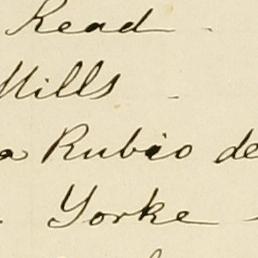 Read -
Mills -
a Rubio de
Yorke -